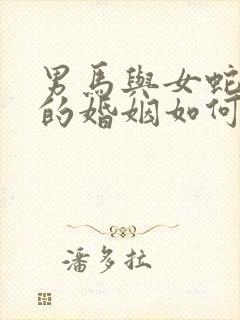 男馬與女蛇
的婚姻如何
潘多拉